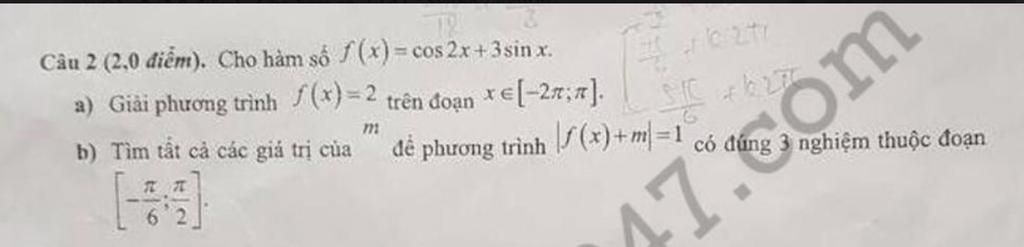 Câu 2 (2,0 điểm). Cho hàm số f(x) = cos 2x + 3 sin x.
a) Giải phương trình f(x) = 2 trên đoạn x ∈ [-2π; π].
b) Tìm tất cả các giá trị của m để phương trình |f(x) + m| = 1 có đúng 3 nghiệm thuộc đoạn
[-π/6; π/2].
π/6 + k2π
5π/6 + k2π
47.com